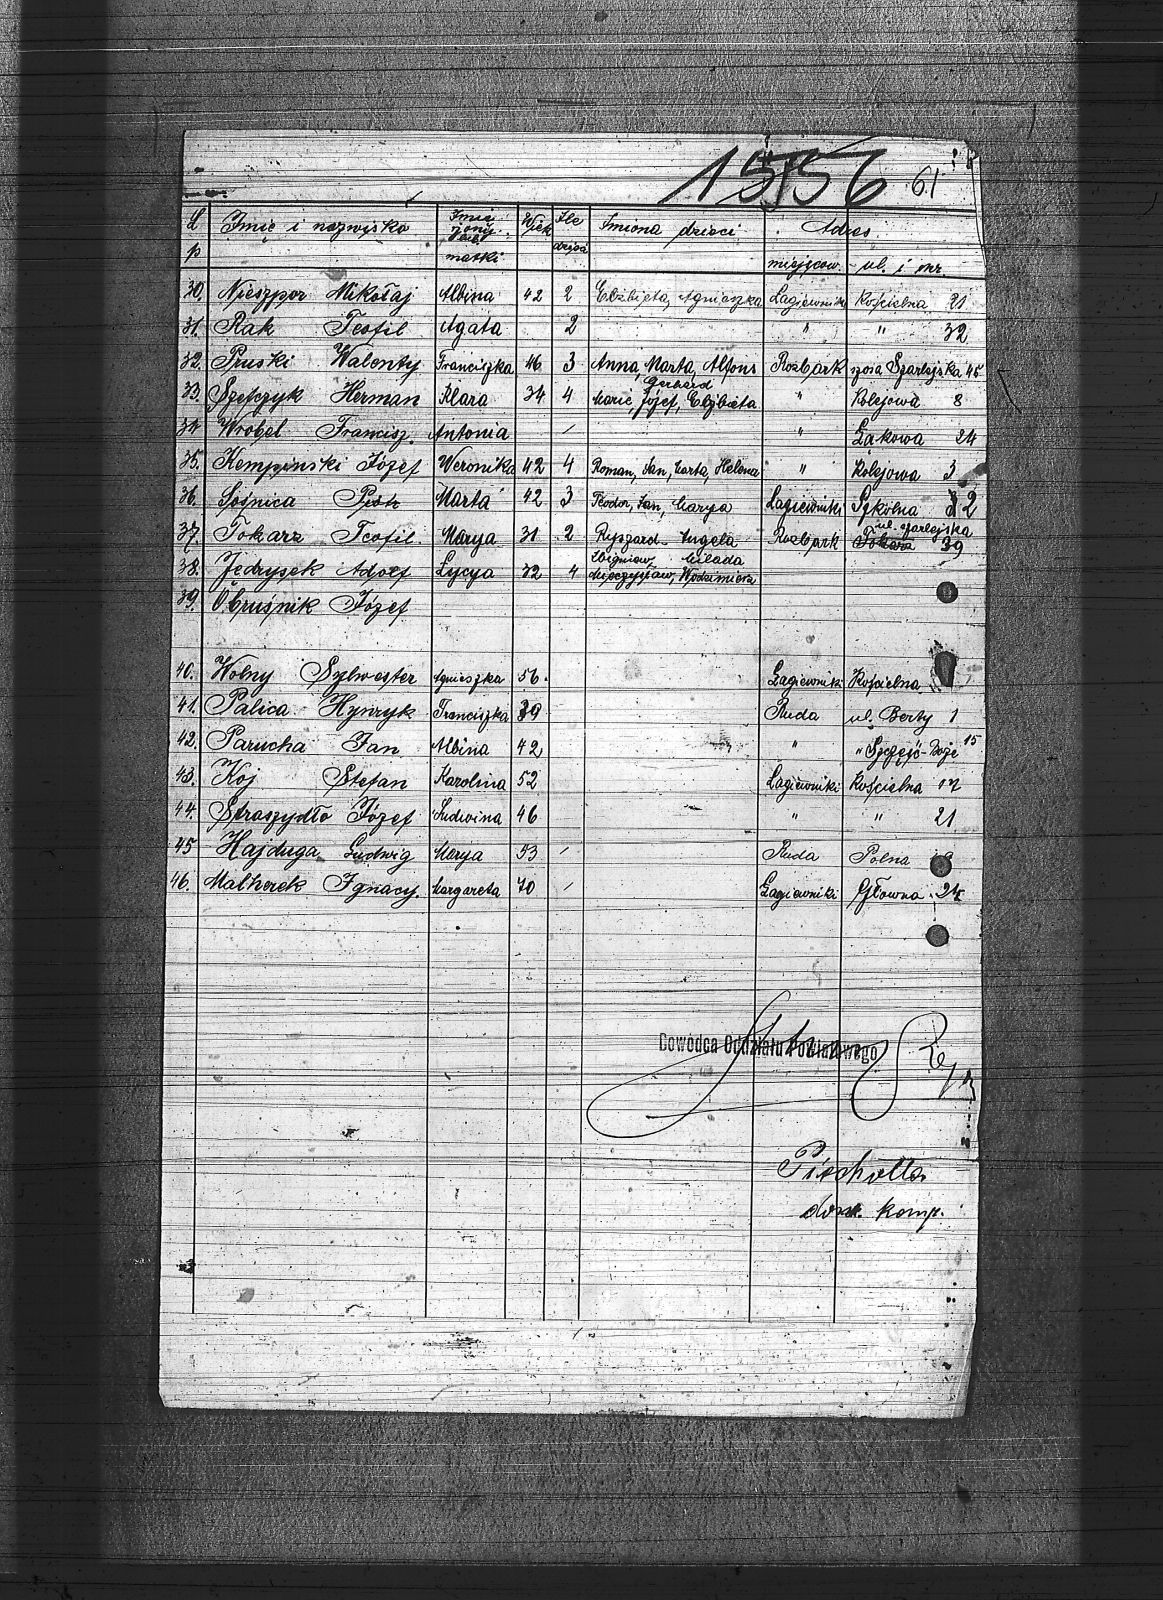 1556 61
L p Imię i nazwisko Imię żony lub matki Wiek Ile dzieci Imiona dzieci Adres
miejscow. ul. i nr
30. Nieszpor Mikołaj Albina 42 2 Elżbieta, Agnieszka Łagiewniki Kościelna 21
31. Rak Teofil Agata 2 " " 32
32. Pruski Walenty Franciszka 46 3 Anna, Marta, Alfons Rozbark szosa Szarlejska 45
33. Szefczyk Herman Klara 34 4 Marie, Józef, Gerhard Elżbieta " Kolejowa 8
34 Wrobel Francisz. Antonia / " Łąkowa 24
35. Kempinski Józef Weronika 42 4 Roman, Jan, Marta, Helena " Kolejowa 3
36. Sośnica Piotr Marta 42 3 Teodor, Jan, Marya Łagiewniki Szkolna 2
37. Tokarz Teofil Marya 31 2 Ryszard Angela Rozbark ul. Szarlejska 39
38. Jędrysek Adolf Lycya 32 4 Zbigniew,
Mieczysław, Włodzimierz
39. Obruśnik Józef
40. Wolny Sylwester Agnieszka 56. Łagiewniki Kościelna
41. Palica Hynryk Franciszka 39 Ruda ul. Berty 1
42. Parucha Jan Albina 42 " " Szczęść-Boże 15
43. Koj Stefan Karolina 52 Łagiewniki Kościelna 17
44. Straszydło Józef Ludwina 46 " " 21
45 Hajduga Ludwig Marya 53 / Ruda Polna
46. Malherek Ignacy. Margareta 70 / Łagiewniki Główna 24
Dowódca Oddziału Powiatowego
Piechotta
dow. komp.